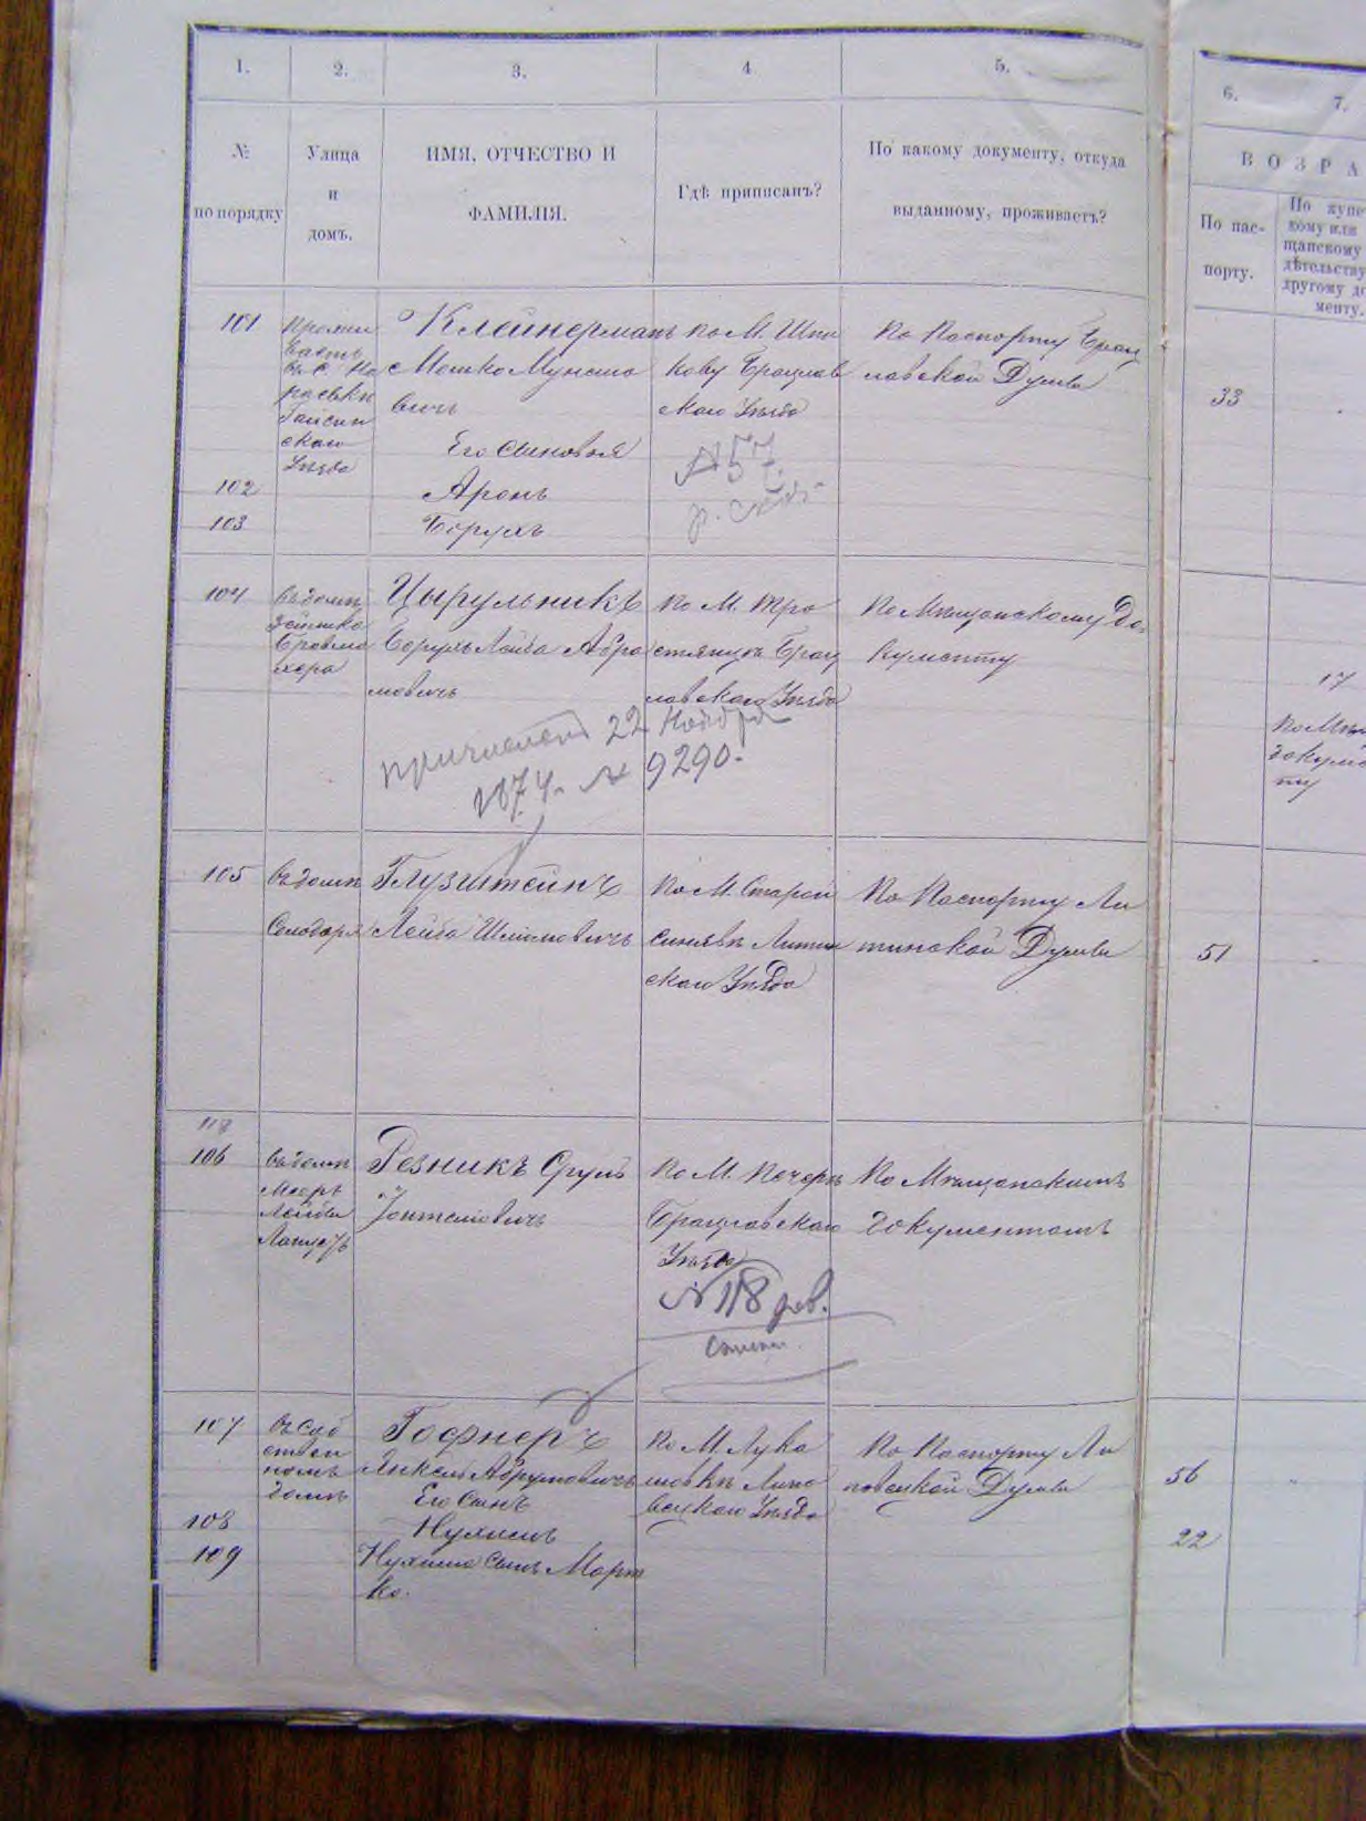 1.
2.
3.
4
5.
6.
7.
№
по порядку
Улица
и
домъ.
ИМЯ, ОТЧЕСТВО И
ФАМИЛІЯ.
Гдѣ приписанъ?
По какому документу, откуда
выданному, проживаетъ?
ВОЗРА
По пас-
порту.
По купе
кому или
щанскому
дѣтельству
другому до
менту.
101
въ с. На
раевкѣ
Гайсин
скаго
Уѣзда
Клейнерманъ
Мошко
вичъ
Его сыновья
по М. Шпи
кову Брацлав
скаго Уѣзда
№ 57.
По Паспорту Брац
лавской Думы
33
102
Аронъ
103
Борухъ
104
въ домѣ
Цырульникъ
Борухъ Лейба Абра
мовичъ
по М. Тро
стянцѣ Брац
лавскаго Уѣзда
По Мѣщанскому До
кументу
17
по Мѣщ
докуме
ту
причисленъ 22 Ноября
1874. № 9290.
105
въ домѣ
Глузштейнъ
Лейба Шлiомовичъ
по М. Старой
Синявѣ Литин
скаго Уѣзда
По Паспорту Ли
тинской Думы
51
118
106
въ домѣ
Меера
Лейбы
Резникъ Сруль
по М. Печерѣ
Брацлавскаго
Уѣзда
№ 118 рев.
По Мѣщанскимъ
документамъ
107
въ соб
ствен
номъ
домѣ
Гофнеръ
Янкель Абрумовичъ
Его сынъ
по М. Лука
шовкѣ Липо
вецкаго Уѣзда
По Паспорту Ли
повецкой Думы
56
108
Нухимъ
22
109
Нухима сынъ Морт
ко.